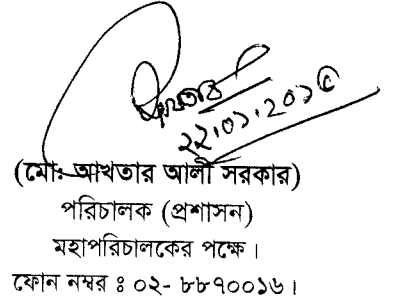 আখতার
২২.০১.২০১৫
(মোঃ আখতার আলী সরকার)
পরিচালক (প্রশাসন)
মহাপরিচালকের পক্ষে।
ফোন নম্বর ঃ ০২- ৮৮৭০০১৬।